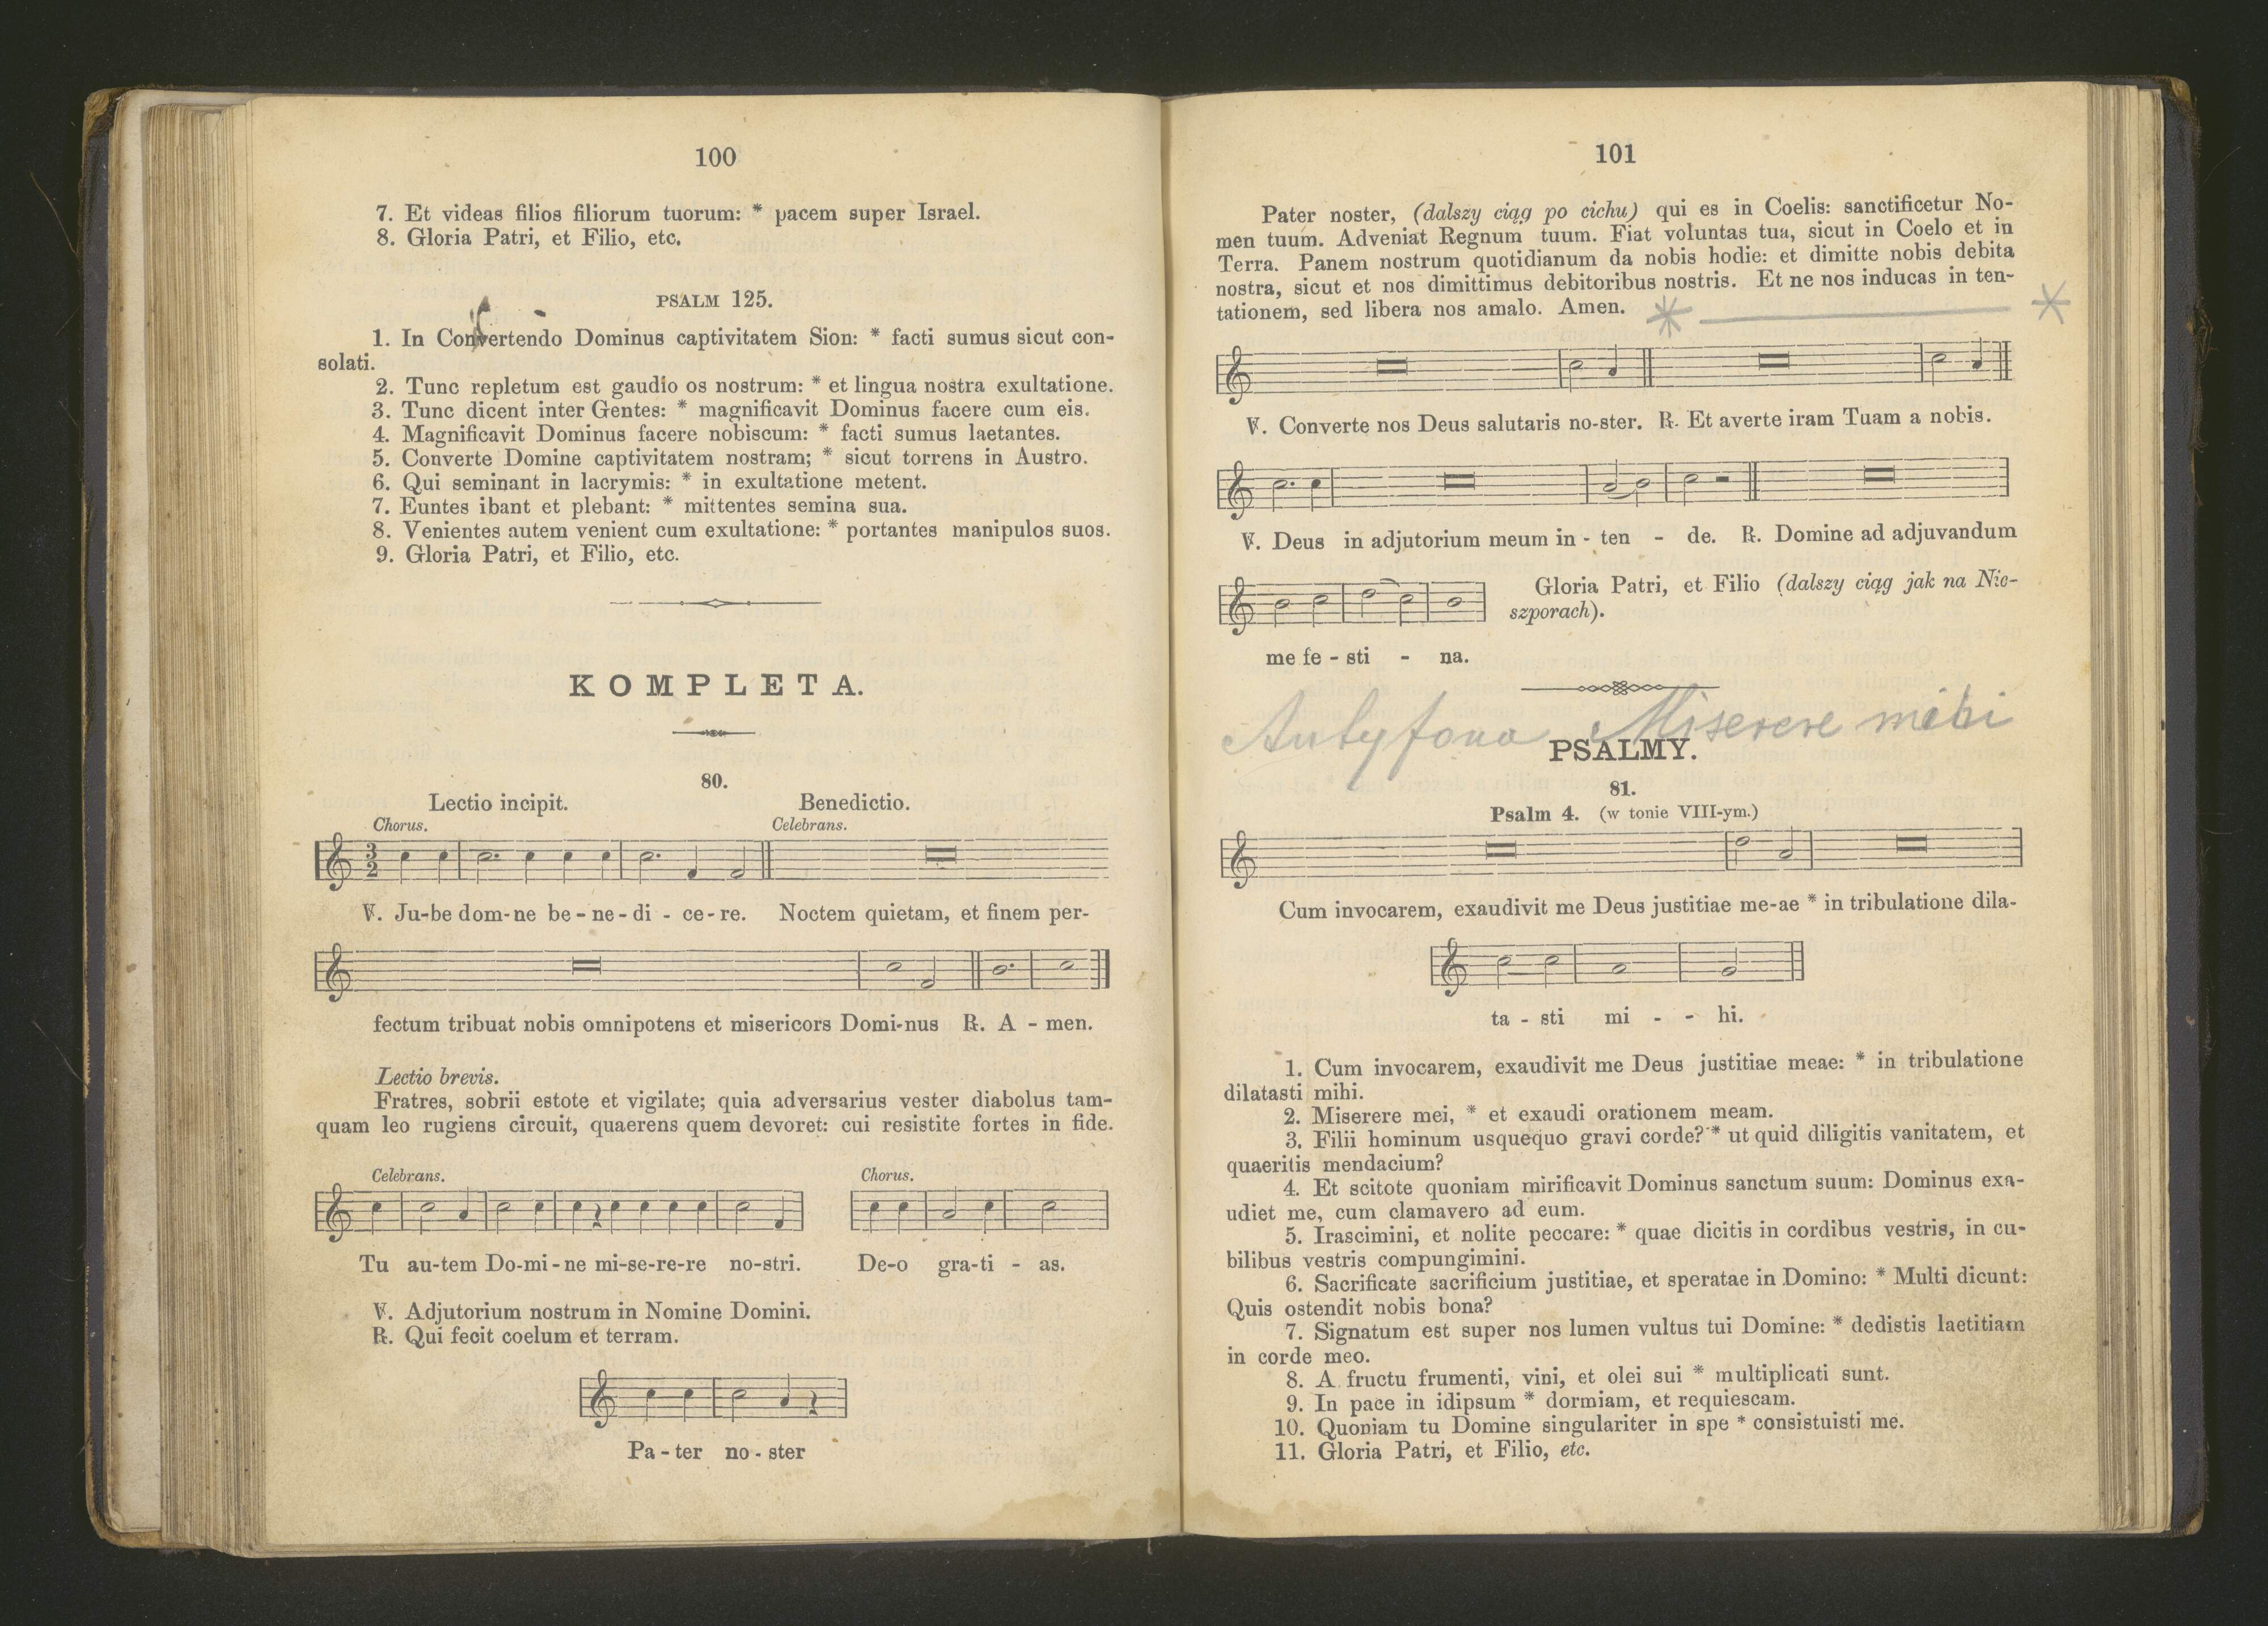 100
7. Et videas filios filiorum tuorum: * pacem super Israel.
8. Gloria Patri, et Filio, etc.
PSALM 125.
1. In Convertendo Dominus captivitatem Sion: * facti sumus sicut con-
solati.
2. Tunc repletum est gaudio os nostrum: * et lingua nostra exultatione.
3. Tunc dicent inter Gentes: * magnificavit Dominus facere cum eis.
4. Magnificavit Dominus facere nobiscum: * facti sumus laetantes.
5. Converte Domine captivitatem nostram; * sicut torrens in Austro.
6. Qui seminant in lacrymis: * in exultatione metent.
7. Euntes ibant et plebant: * mittentes semina sua.
8. Venientes autem venient cum exultatione: * portantes manipulos suos.
9. Gloria Patri, et Filio, etc.
KOMPLETA.
80.
Lectio incipit. Benedictio.
Chorus. Celebrans.
3
2
℣. Ju-be dom-ne be-ne-di-ce-re. Noctem quietam, et finem per-
fectum tribuat nobis omnipotens et misericors Domi-nus ℟. A-men.
Lectio brevis.
Fratres, sobrii estote et vigilate; quia adversarius vester diabolus tam-
quam leo rugiens circuit, quaerens quem devoret: cui resistite fortes in fide.
Celebrans. Chorus.
Tu au-tem Do-mi-ne mi-se-re-re no-stri. De-o gra-ti-as.
℣. Adjutorium nostrum in Nomine Domini.
℟. Qui fecit coelum et terram.
Pa-ter no-ster
101
Pater noster, (dalszy ciąg po cichu) qui es in Coelis: sanctificetur No-
men tuum. Adveniat Regnum tuum. Fiat voluntas tua, sicut in Coelo et in
Terra. Panem nostrum quotidianum da nobis hodie: et dimitte nobis debita
nostra, sicut et nos dimittimus debitoribus nostris. Et ne nos inducas in ten-
tationem, sed libera nos amalo. Amen.
℣. Converte nos Deus salutaris no-ster. ℟. Et averte iram Tuam a nobis.
℣. Deus in adjutorium meum in-ten-de. ℟. Domine ad adjuvandum
Gloria Patri, et Filio (dalszy ciąg jak na Nie-
szporach).
me fe-sti-na.
Antyfona Miserere mihi
PSALMY.
81.
Psalm 4. (w tonie VIII-ym.)
Cum invocarem, exaudivit me Deus justitiae me-ae * in tribulatione dila-
ta-sti mi--hi.
1. Cum invocarem, exaudivit me Deus justitiae meae: * in tribulatione
dilatasti mihi.
2. Miserere mei, * et exaudi orationem meam.
3. Filii hominum usquequo gravi corde? * ut quid diligitis vanitatem, et
quaeritis mendacium?
4. Et scitote quoniam mirificavit Dominus sanctum suum: Dominus exa-
udiet me, cum clamavero ad eum.
5. Irascimini, et nolite peccare: * quae dicitis in cordibus vestris, in cu-
bilibus vestris compungimini.
6. Sacrificate sacrificium justitiae, et speratae in Domino: * Multi dicunt:
Quis ostendit nobis bona?
7. Signatum est super nos lumen vultus tui Domine: * dedistis laetitiam
in corde meo.
8. A fructu frumenti, vini, et olei sui * multiplicati sunt.
9. In pace in idipsum * dormiam, et requiescam.
10. Quoniam tu Domine singulariter in spe * consistuisti me.
11. Gloria Patri, et Filio, etc.